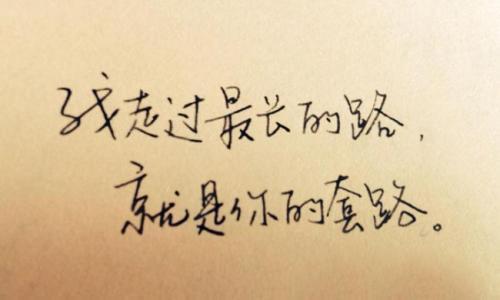 我走过最长的路，
就是你的套路。